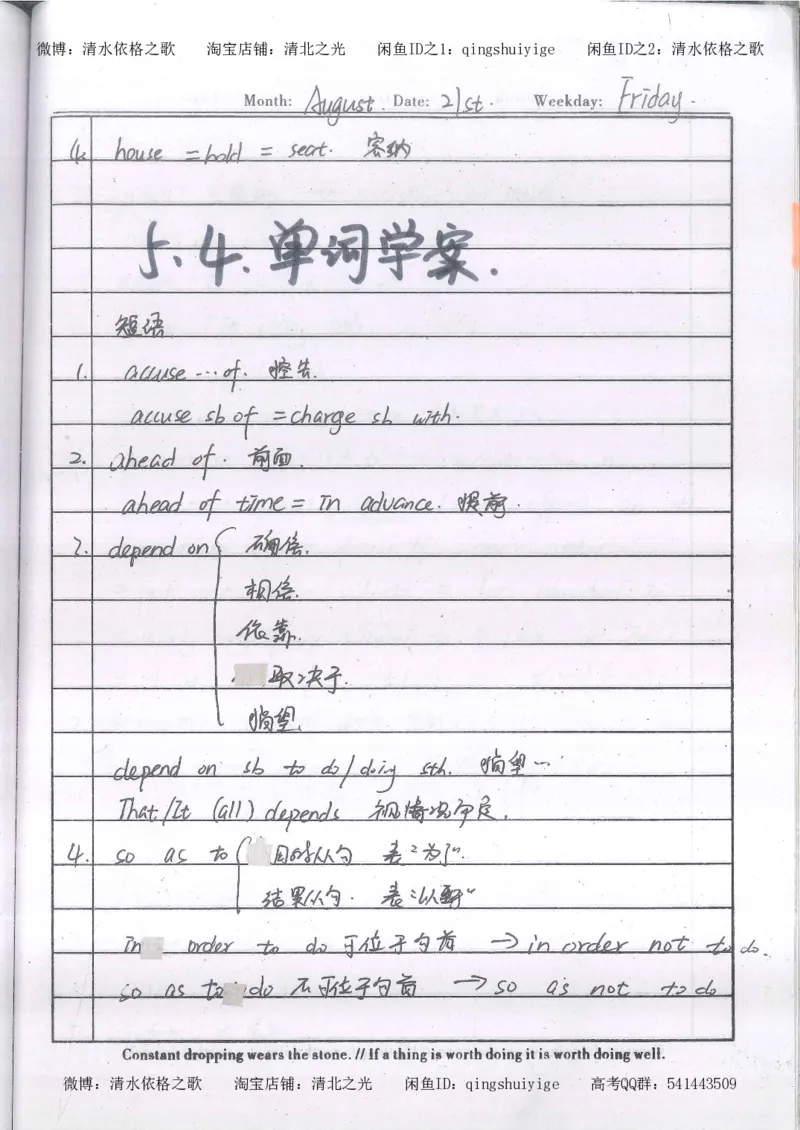 微博：清水依格之歌 淘宝店铺：清北之光 闲鱼ID之1：qingshuiyige 闲鱼ID之2：清水依格之歌
Month: August. Date: 21st. Weekday: Friday.
4. house = hold = seat. 容纳
5.4.单词学案.
短语
1. accuse ... of. 控告.
accuse sb of = charge sb with.
2. ahead of. 前面.
ahead of time = in advance. 提前.
3. depend on { 确信.
相信.
依靠.
取决于.
指望.
depend on sb to do/doing sth. 指望…
That/It (all) depends 视情况而定.
4. so as to { 目的状从句 表"为了".
结果从句. 表"以致"
In order to do 可位于句首 → in order not to do.
so as to do 不可位于句首 → so as not to do
Constant dropping wears the stone. // If a thing is worth doing it is worth doing well.
微博：清水依格之歌 淘宝店铺：清北之光 闲鱼ID：qingshuiyige 高考QQ群：541443509